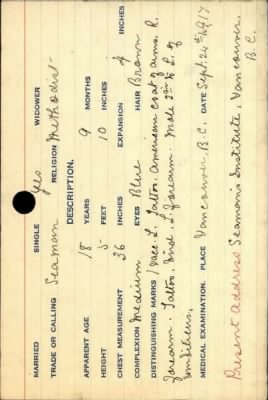 MARRIED SINGLE Yes WIDOWER
TRADE OR CALLING Seaman RELIGION Methodist
DESCRIPTION.
APPARENT AGE 18 YEARS 9 MONTHS
HEIGHT 5 FEET 10 INCHES
CHEST MEASUREMENT 36 INCHES EXPANSION 4 INCHES
COMPLEXION Medium EYES Blue HAIR Brown
DISTINGUISHING MARKS 1 Vacc. L. Tattoo. American coat of arms. R.
forearm. Tattoo. Bird. L. forearm. Mole 2in to L. of
MEDICAL EXAMINATION. PLACE Vancouver, B.C. DATE Sept. 24th 1917
Present Address Seaman's Institute, Vancouver.
B.C.